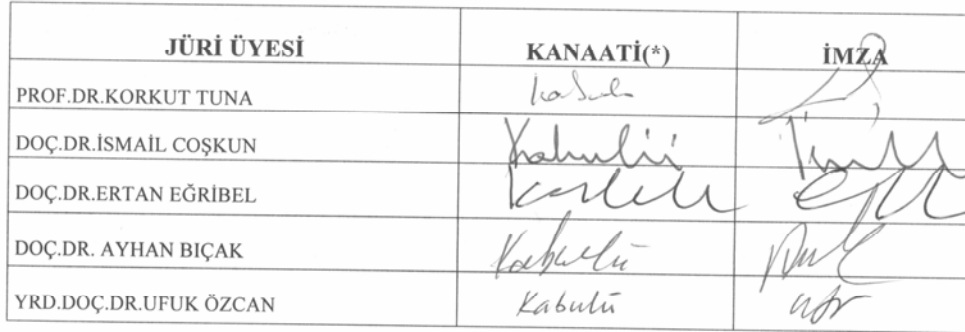 JÜRİ ÜYESİ KANAATİ(*) İMZA
PROF.DR.KORKUT TUNA
DOÇ.DR.İSMAİL COŞKUN Kabulü
DOÇ.DR.ERTAN EĞRİBEL
DOÇ.DR. AYHAN BIÇAK Kabulü
YRD.DOÇ.DR.UFUK ÖZCAN Kabulü